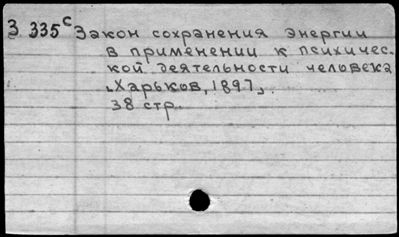 З 335ᶜ Закон сохранения энергии
в применении к психичес.
кой деятельности человека
[Харьков, 1897].
38 стр.